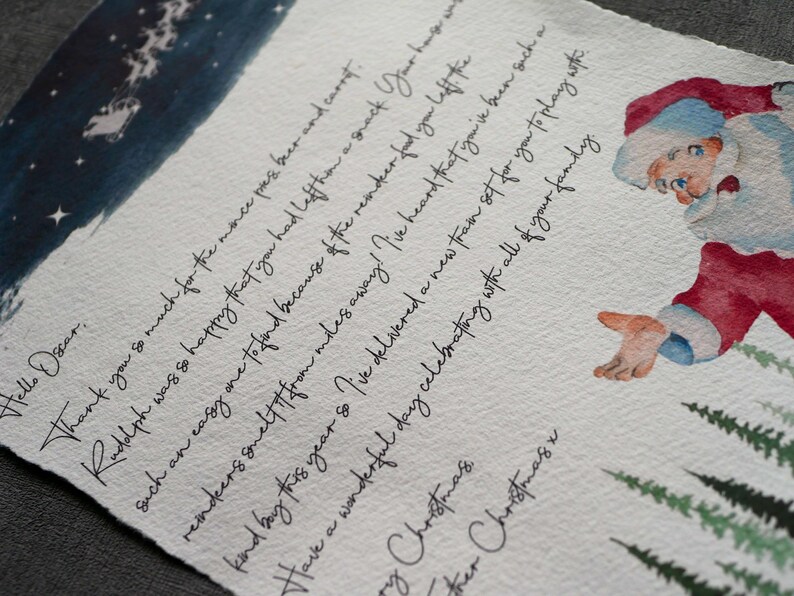 Hello Oscar,
Thank you so much for the mince pies, beer and carrot.
Rudolph was so happy that you had left him a snack. Your house was
such an easy one to find because of the reindeer food you left, the
reindeers smelt it from miles away! I've heard that you've been such a
kind boy this year so I've delivered a new train set for you to play with.
Have a wonderful day celebrating with all of your family.
ry Christmas,
ther Christmas x